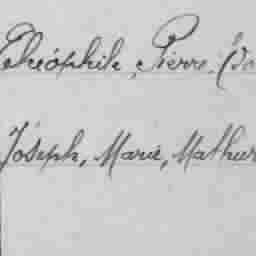 Théophile, Pierre, (dc
Joseph, Marie, Mathur